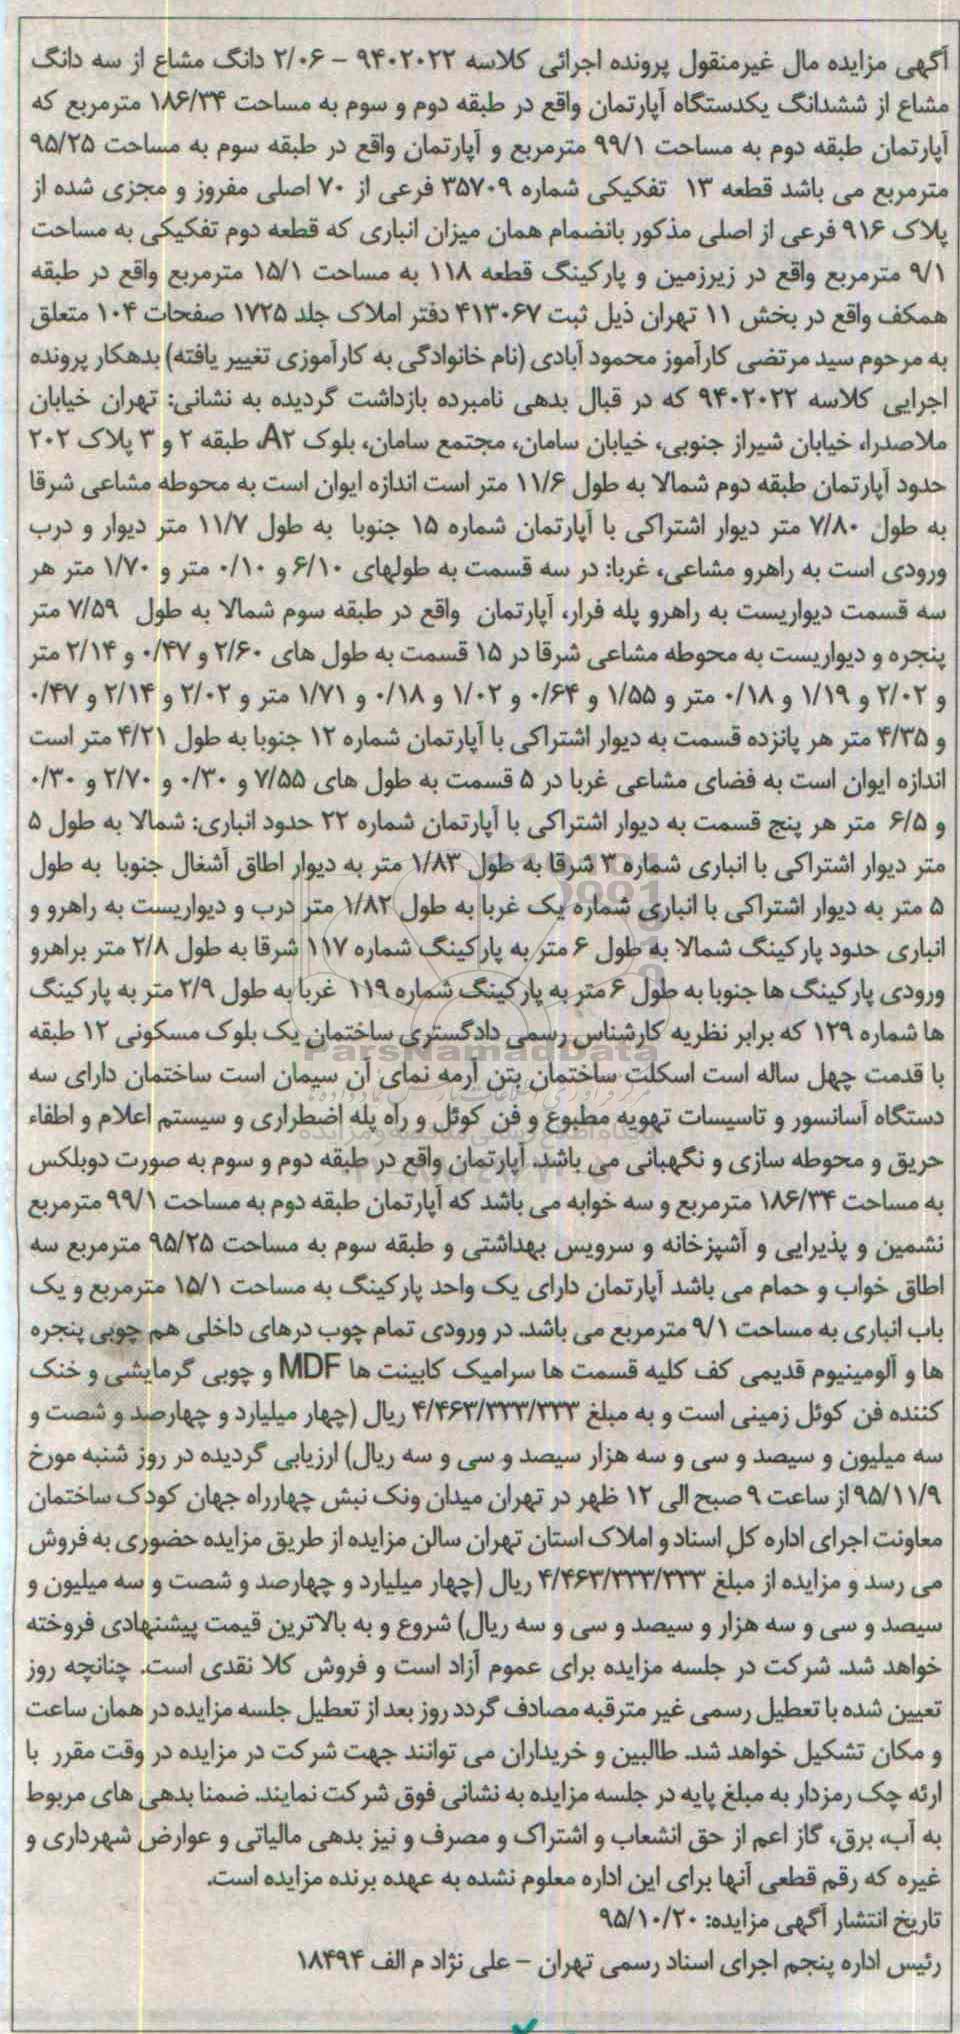 آگهی مزایده مال غیرمنقول پرونده اجرائی کلاسه ۹۴۰۲۰۲۲ - ۲/۰۶ دانگ مشاع از سه دانگ
مشاع از ششدانگ یکدستگاه آپارتمان واقع در طبقه دوم و سوم به مساحت ۱۸۶/۳۴ مترمربع که
آپارتمان طبقه دوم به مساحت ۹۹/۱ مترمربع و آپارتمان واقع در طبقه سوم به مساحت ۹۵/۲۵
مترمربع می باشد قطعه ۱۳ تفکیکی شماره ۳۵۷۰۹ فرعی از ۷۰ اصلی مفروز و مجزی شده از
پلاک ۹۱۶ فرعی از اصلی مذکور بانضمام همان میزان انباری که قطعه دوم تفکیکی به مساحت
۹/۱ مترمربع واقع در زیرزمین و پارکینگ قطعه ۱۱۸ به مساحت ۱۵/۱ مترمربع واقع در طبقه
همکف واقع در بخش ۱۱ تهران ذیل ثبت ۴۱۳۰۶۷ دفتر املاک جلد ۱۷۲۵ صفحات ۱۰۴ متعلق
به مرحوم سید مرتضی کارآموز محمود آبادی (نام خانوادگی به کارآموزی تغییر یافته) بدهکار پرونده
اجرایی کلاسه ۹۴۰۲۰۲۲ که در قبال بدهی نامبرده بازداشت گردیده به نشانی: تهران خیابان
ملاصدرا، خیابان شیراز جنوبی، خیابان سامان، مجتمع سامان، بلوک A۲، طبقه ۲ و ۳ پلاک ۲۰۲
حدود آپارتمان طبقه دوم شمالا به طول ۱۱/۶ متر است اندازه ایوان است به محوطه مشاعی شرقا
به طول ۷/۸۰ متر دیوار اشتراکی با آپارتمان شماره ۱۵ جنوبا به طول ۱۱/۷ متر دیوار و درب
ورودی است به راهرو مشاعی، غربا: در سه قسمت به طولهای ۶/۱۰ و ۰/۱۰ متر و ۱/۷۰ متر هر
سه قسمت دیواریست به راهرو پله فرار، آپارتمان واقع در طبقه سوم شمالا به طول ۷/۵۹ متر
پنجره و دیواریست به محوطه مشاعی شرقا در ۱۵ قسمت به طول های ۲/۶۰ و ۰/۴۷ و ۲/۱۴ متر
و ۲/۰۲ و ۱/۱۹ و ۰/۱۸ متر و ۱/۵۵ و ۰/۶۴ و ۱/۰۲ و ۰/۱۸ و ۱/۷۱ متر و ۲/۰۲ و ۲/۱۴ و ۰/۴۷
و ۴/۳۵ متر هر پانزده قسمت به دیوار اشتراکی با آپارتمان شماره ۱۲ جنوبا به طول ۴/۲۱ متر است
اندازه ایوان است به فضای مشاعی غربا در ۵ قسمت به طول های ۷/۵۵ و ۰/۳۰ و ۲/۷۰ و ۰/۳۰
و ۶/۵ متر هر پنج قسمت به دیوار اشتراکی با آپارتمان شماره ۲۲ حدود انباری: شمالا به طول ۵
متر دیوار اشتراکی با انباری شماره ۳ شرقا به طول ۱/۸۳ متر به دیوار اطاق آشغال جنوبا به طول
۵ متر به دیوار اشتراکی با انباری شماره یک غربا به طول ۱/۸۲ متر درب و دیواریست به راهرو و
انباری حدود پارکینگ شمالا به طول ۶ متر به پارکینگ شماره ۱۱۷ شرقا به طول ۲/۸ متر براهرو
ورودی پارکینگ ها جنوبا به طول ۶ متر به پارکینگ شماره ۱۱۹ غربا به طول ۲/۹ متر به پارکینگ
ها شماره ۱۲۹ که برابر نظریه کارشناس رسمی دادگستری ساختمان یک بلوک مسکونی ۱۲ طبقه
با قدمت چهل ساله است اسکلت ساختمان بتن آرمه نمای آن سیمان است ساختمان دارای سه
دستگاه آسانسور و تاسیسات تهویه مطبوع و فن کوئل و راه پله اضطراری و سیستم اعلام و اطفاء
حریق و محوطه سازی و نگهبانی می باشد. آپارتمان واقع در طبقه دوم و سوم به صورت دوبلکس
به مساحت ۱۸۶/۳۴ مترمربع و سه خوابه می باشد که آپارتمان طبقه دوم به مساحت ۹۹/۱ مترمربع
نشمین و پذیرایی و آشپزخانه و سرویس بهداشتی و طبقه سوم به مساحت ۹۵/۲۵ مترمربع سه
اطاق خواب و حمام می باشد آپارتمان دارای یک واحد پارکینگ به مساحت ۱۵/۱ مترمربع و یک
باب انباری به مساحت ۹/۱ مترمربع می باشد. در ورودی تمام چوب درهای داخلی هم چوبی پنجره
ها و آلومینیوم قدیمی کف کلیه قسمت ها سرامیک کابینت ها MDF و چوبی گرمایشی و خنک
کننده فن کوئل زمینی است و به مبلغ ۴/۴۶۳/۳۳۳/۳۳۳ ریال (چهار میلیارد و چهارصد و شصت و
سه میلیون و سیصد و سی و سه هزار سیصد و سی و سه ریال) ارزیابی گردیده در روز شنبه مورخ
۹۵/۱۱/۹ از ساعت ۹ صبح الی ۱۲ ظهر در تهران میدان ونک نبش چهارراه جهان کودک ساختمان
معاونت اجرای اداره کل اسناد و املاک استان تهران سالن مزایده از طریق مزایده حضوری به فروش
می رسد و مزایده از مبلغ ۴/۴۶۳/۳۳۳/۳۳۳ ریال (چهار میلیارد و چهارصد و شصت و سه میلیون و
سیصد و سی و سه هزار و سیصد و سی و سه ریال) شروع و به بالاترین قیمت پیشنهادی فروخته
خواهد شد. شرکت در جلسه مزایده برای عموم آزاد است و فروش کلا نقدی است. چنانچه روز
تعیین شده با تعطیل رسمی غیر مترقبه مصادف گردد روز بعد از تعطیل جلسه مزایده در همان ساعت
و مکان تشکیل خواهد شد. طالبین و خریداران می توانند جهت شرکت در مزایده در وقت مقرر با
ارئه چک رمزدار به مبلغ پایه در جلسه مزایده به نشانی فوق شرکت نمایند. ضمنا بدهی های مربوط
به آب، برق، گاز اعم از حق انشعاب و اشتراک و مصرف و نیز بدهی مالیاتی و عوارض شهرداری و
غیره که رقم قطعی آنها برای این اداره معلوم نشده به عهده برنده مزایده است.
تاریخ انتشار آگهی مزایده: ۹۵/۱۰/۲۰
رئیس اداره پنجم اجرای اسناد رسمی تهران - علی نژاد م الف ۱۸۴۹۴
ParsNamadData